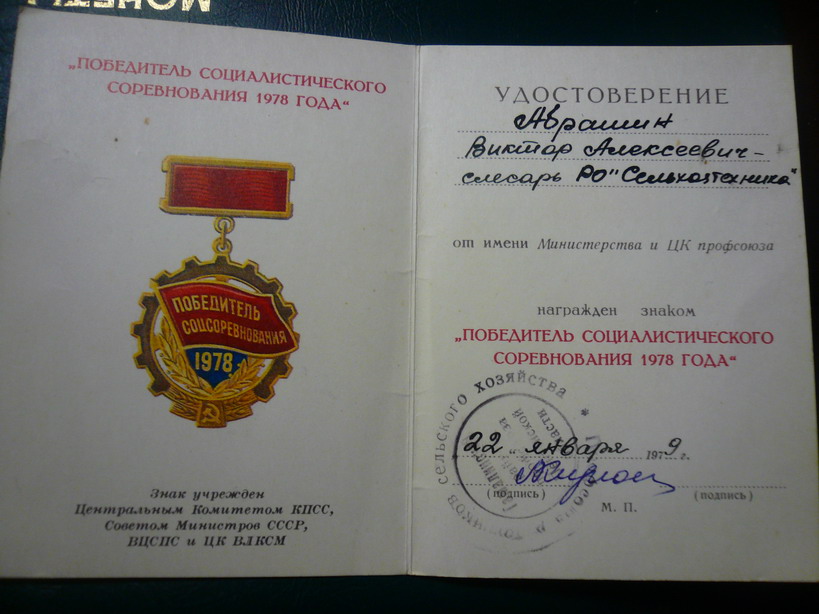 МОНЕТЫ
„ПОБЕДИТЕЛЬ СОЦИАЛИСТИЧЕСКОГО
СОРЕВНОВАНИЯ 1978 ГОДА“
ПОБЕДИТЕЛЬ
СОЦСОРЕВНОВАНИЯ
1978
Знак учрежден
Центральным Комитетом КПСС,
Советом Министров СССР,
ВЦСПС и ЦК ВЛКСМ
УДОСТОВЕРЕНИЕ
Аврашин
Виктор Алексеевич –
слесарь РО "Сельхозтехника"
от имени Министерства и ЦК профсоюза
награжден знаком
„ПОБЕДИТЕЛЬ СОЦИАЛИСТИЧЕСКОГО
СОРЕВНОВАНИЯ 1978 ГОДА“
сельского хозяйства *
22 „ января 1979 г.
(подпись) (подпись)
М. П.